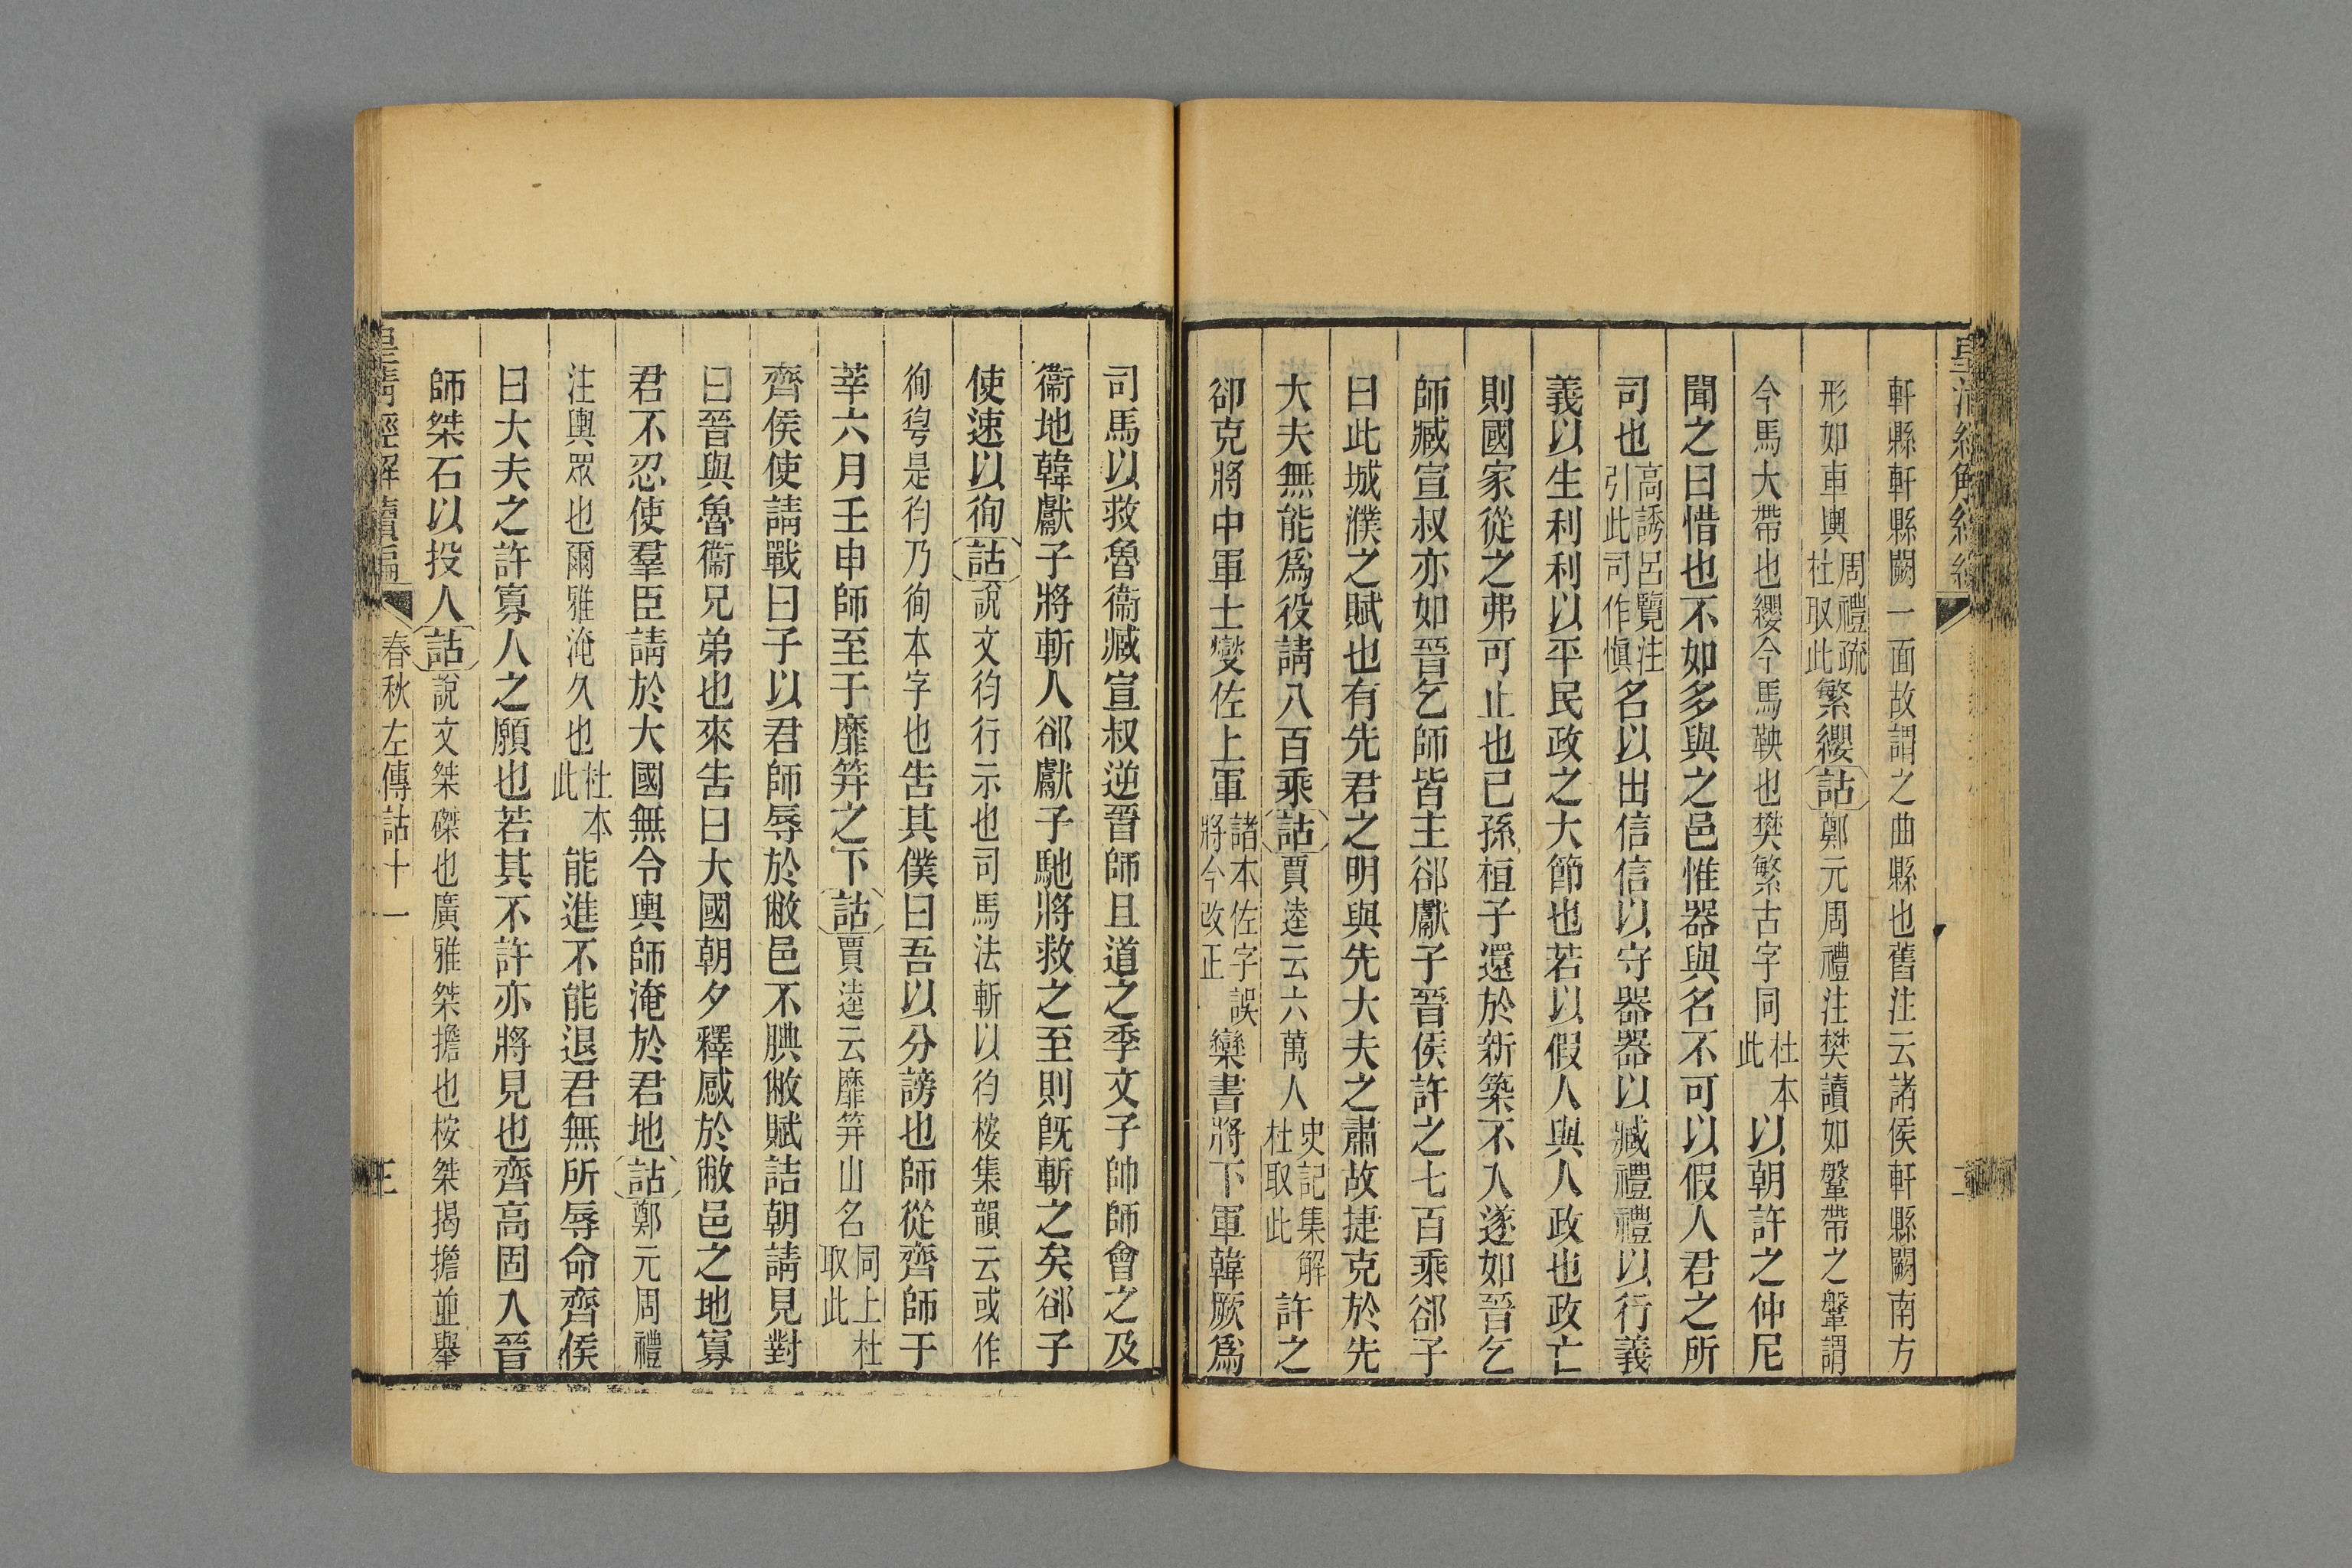 軒縣軒縣闕一面故謂之曲縣也舊注云諸侯軒縣闕南方
形如車輿周禮疏杜取此繁纓詁鄭元周禮注樊讀如鞶帶之鞶謂
今馬大帶也纓今馬鞅也樊繁古字同杜本此以朝許之仲尼
聞之曰惜也不如多與之邑惟器與名不可以假人君之所
司也高誘呂覽注引此司作愼名以出信信以守器器以臧禮禮以行義
義以生利利以平民政之大節也若以假人與人政也政亡
則國家從之弗可止也已孫桓子還於新築不入遂如晉乞
師臧宣叔亦如晉乞師皆主郤獻子晉侯許之七百乘郤子
曰此城濮之賦也有先君之明與先大夫之肅故捷克於先
大夫無能爲役請八百乘詁賈逵云六萬人史記集解杜取此許之
郤克將中軍士燮佐上軍諸本佐字誤將今改正欒書將下軍韓厥爲
司馬以救魯衞臧宣叔逆晉師且道之季文子帥師會之及
衞地韓獻子將斬人郤獻子馳將救之至則旣斬之矣郤子
使速以徇詁說文徇行示也司馬法斬以徇桉集韻云或作
徇㣄是徇乃徇本字也告其僕曰吾以分謗也師從齊師于
莘六月壬申師至于靡筓之下詁賈逵云靡筓山名同上杜取此
齊侯使請戰曰子以君師辱於敝邑不腆敝賦詰朝請見對
曰晉與魯衞兄弟也來告曰大國朝夕釋感於敝邑之地寡
君不忍使羣臣請於大國無令輿師淹於君地詁鄭元周禮
注輿眾也爾雅淹久也杜本此能進不能退君無所辱命齊侯
曰大夫之許寡人之願也若其不許亦將見也齊高固入晉
師桀石以投人詁說文桀磔也廣雅桀擔也桉桀揭擔並舉
皇淸經解續編 春秋左傳詁十一